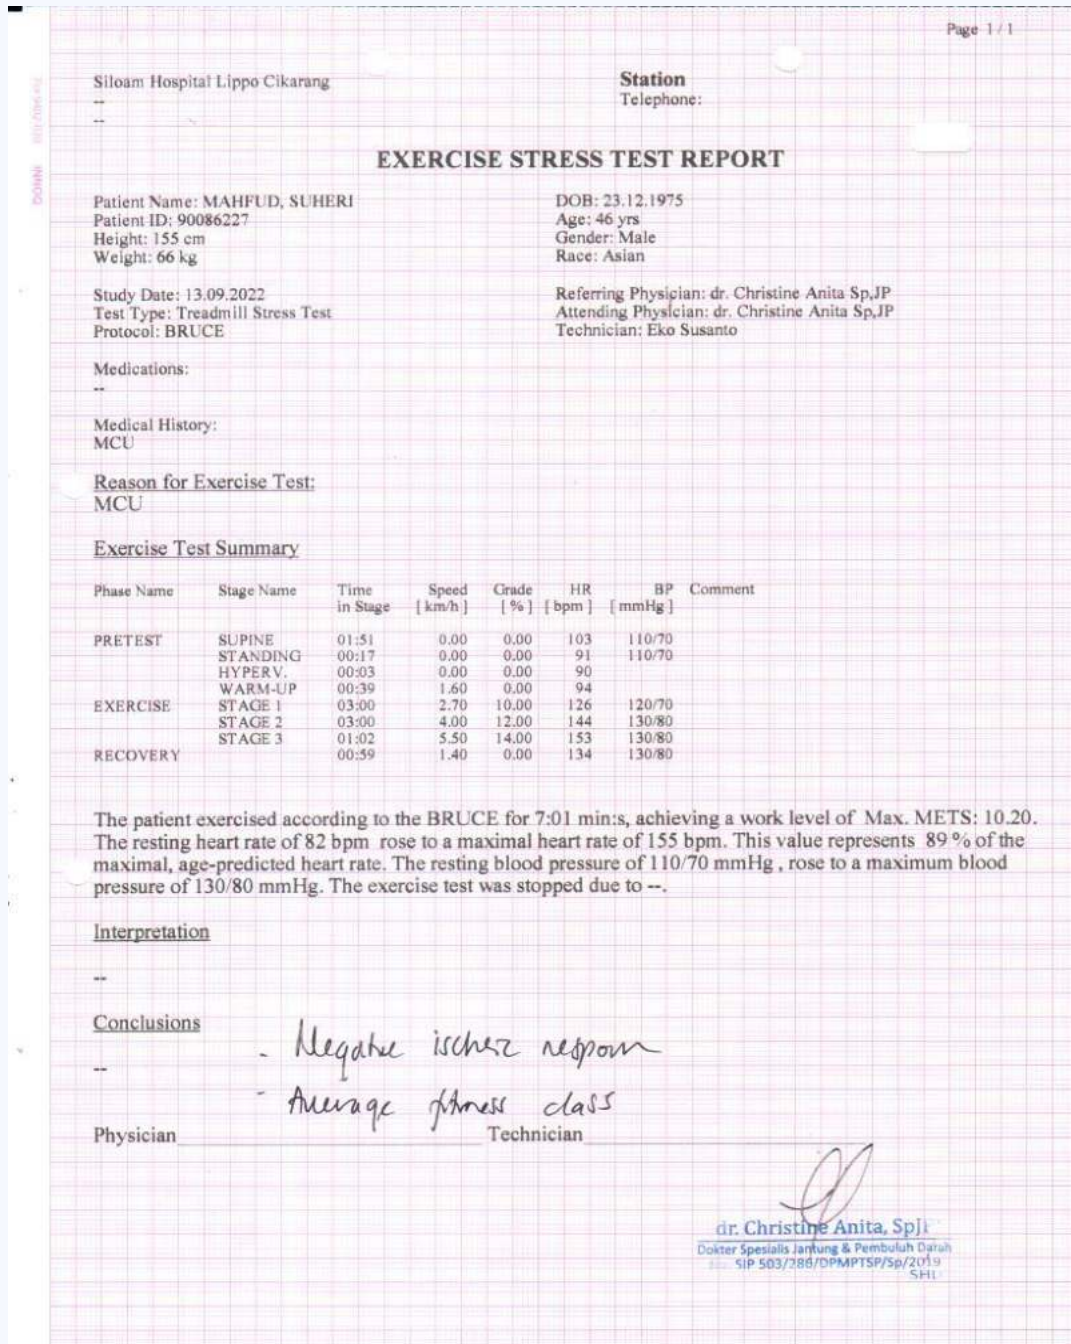 Page 1 / 1
Siloam Hospital Lippo Cikarang
Station
--
Telephone:
--
EXERCISE STRESS TEST REPORT
Patient Name: MAHFUD, SUHERI
DOB: 23.12.1975
Patient ID: 90086227
Age: 46 yrs
Height: 155 cm
Gender: Male
Weight: 66 kg
Race: Asian
Study Date: 13.09.2022
Referring Physician: dr. Christine Anita Sp,JP
Test Type: Treadmill Stress Test
Attending Physician: dr. Christine Anita Sp,JP
Protocol: BRUCE
Technician: Eko Susanto
Medications:
--
Medical History:
MCU
Reason for Exercise Test:
MCU
Exercise Test Summary
Phase Name Stage Name Time Speed Grade HR BP Comment
in Stage [ km/h ] [ % ] [ bpm ] [ mmHg ]
PRETEST SUPINE 01:51 0.00 0.00 103 110/70
STANDING 00:17 0.00 0.00 91 110/70
HYPERV. 00:03 0.00 0.00 90
WARM-UP 00:39 1.60 0.00 94
EXERCISE STAGE 1 03:00 2.70 10.00 126 120/70
STAGE 2 03:00 4.00 12.00 144 130/80
STAGE 3 01:02 5.50 14.00 153 130/80
RECOVERY 00:59 1.40 0.00 134 130/80
The patient exercised according to the BRUCE for 7:01 min:s, achieving a work level of Max. METS: 10.20.
The resting heart rate of 82 bpm rose to a maximal heart rate of 155 bpm. This value represents 89 % of the
maximal, age-predicted heart rate. The resting blood pressure of 110/70 mmHg , rose to a maximum blood
pressure of 130/80 mmHg. The exercise test was stopped due to --.
Interpretation
--
Conclusions
- Negative ischemic respon
--
- Average fitness class
Physician Technician
dr. Christine Anita, SpJP
Dokter Spesialis Jantung & Pembuluh Darah
SIP 503/286/DPMPTSP/Sp/2019